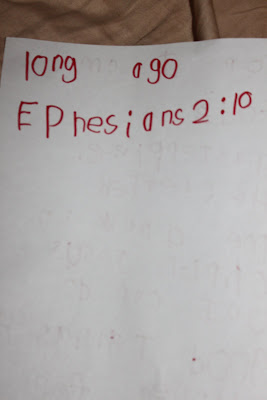 long ago
EPhesians 2:10